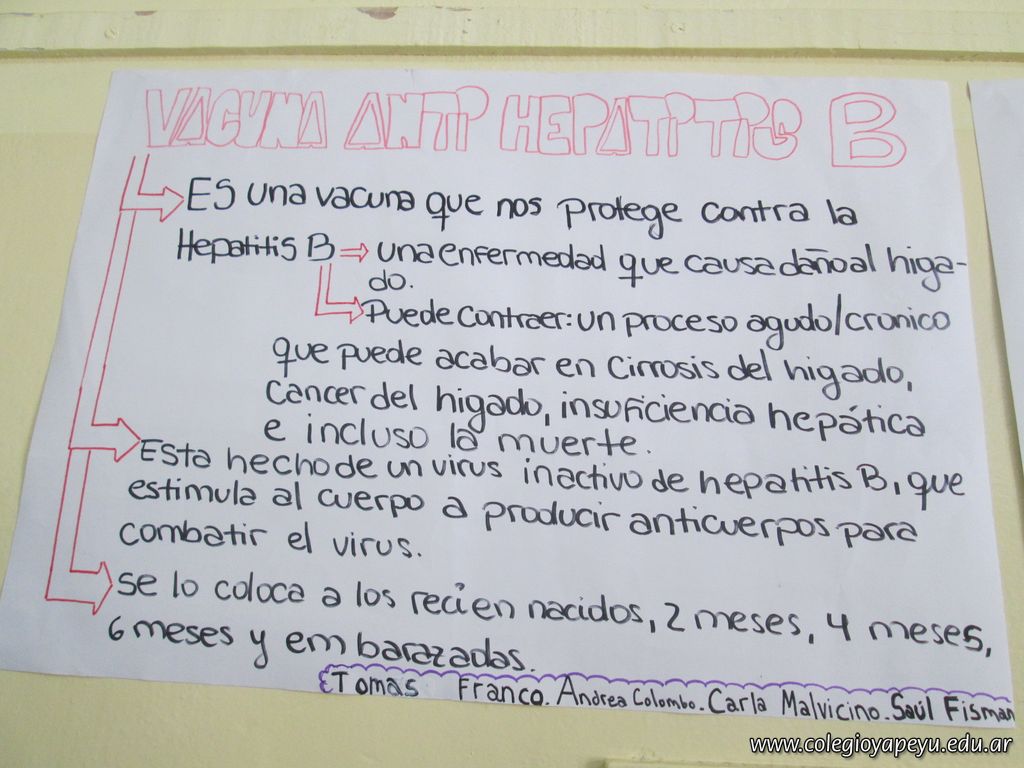 VACUNA ANTI HEPATITIS B
ES una vacuna que nos protege contra la
Hepatitis B ⇒ una enfermedad que causa daño al higa-
do.
Puede contraer: un proceso agudo/cronico
que puede acabar en cirrosis del higado,
cancer del higado, insuficiencia hepática
e incluso la muerte.
Esta hecho de un virus inactivo de hepatitis B, que
estimula al cuerpo a producir anticuerpos para
combatir el virus.
se lo coloca a los recien nacidos, 2 meses, 4 meses,
6 meses y embarazadas.
Tomas Franco. Andrea Colombo. Carla Malvicino. Saúl Fisman
www.colegioyapeyu.edu.ar